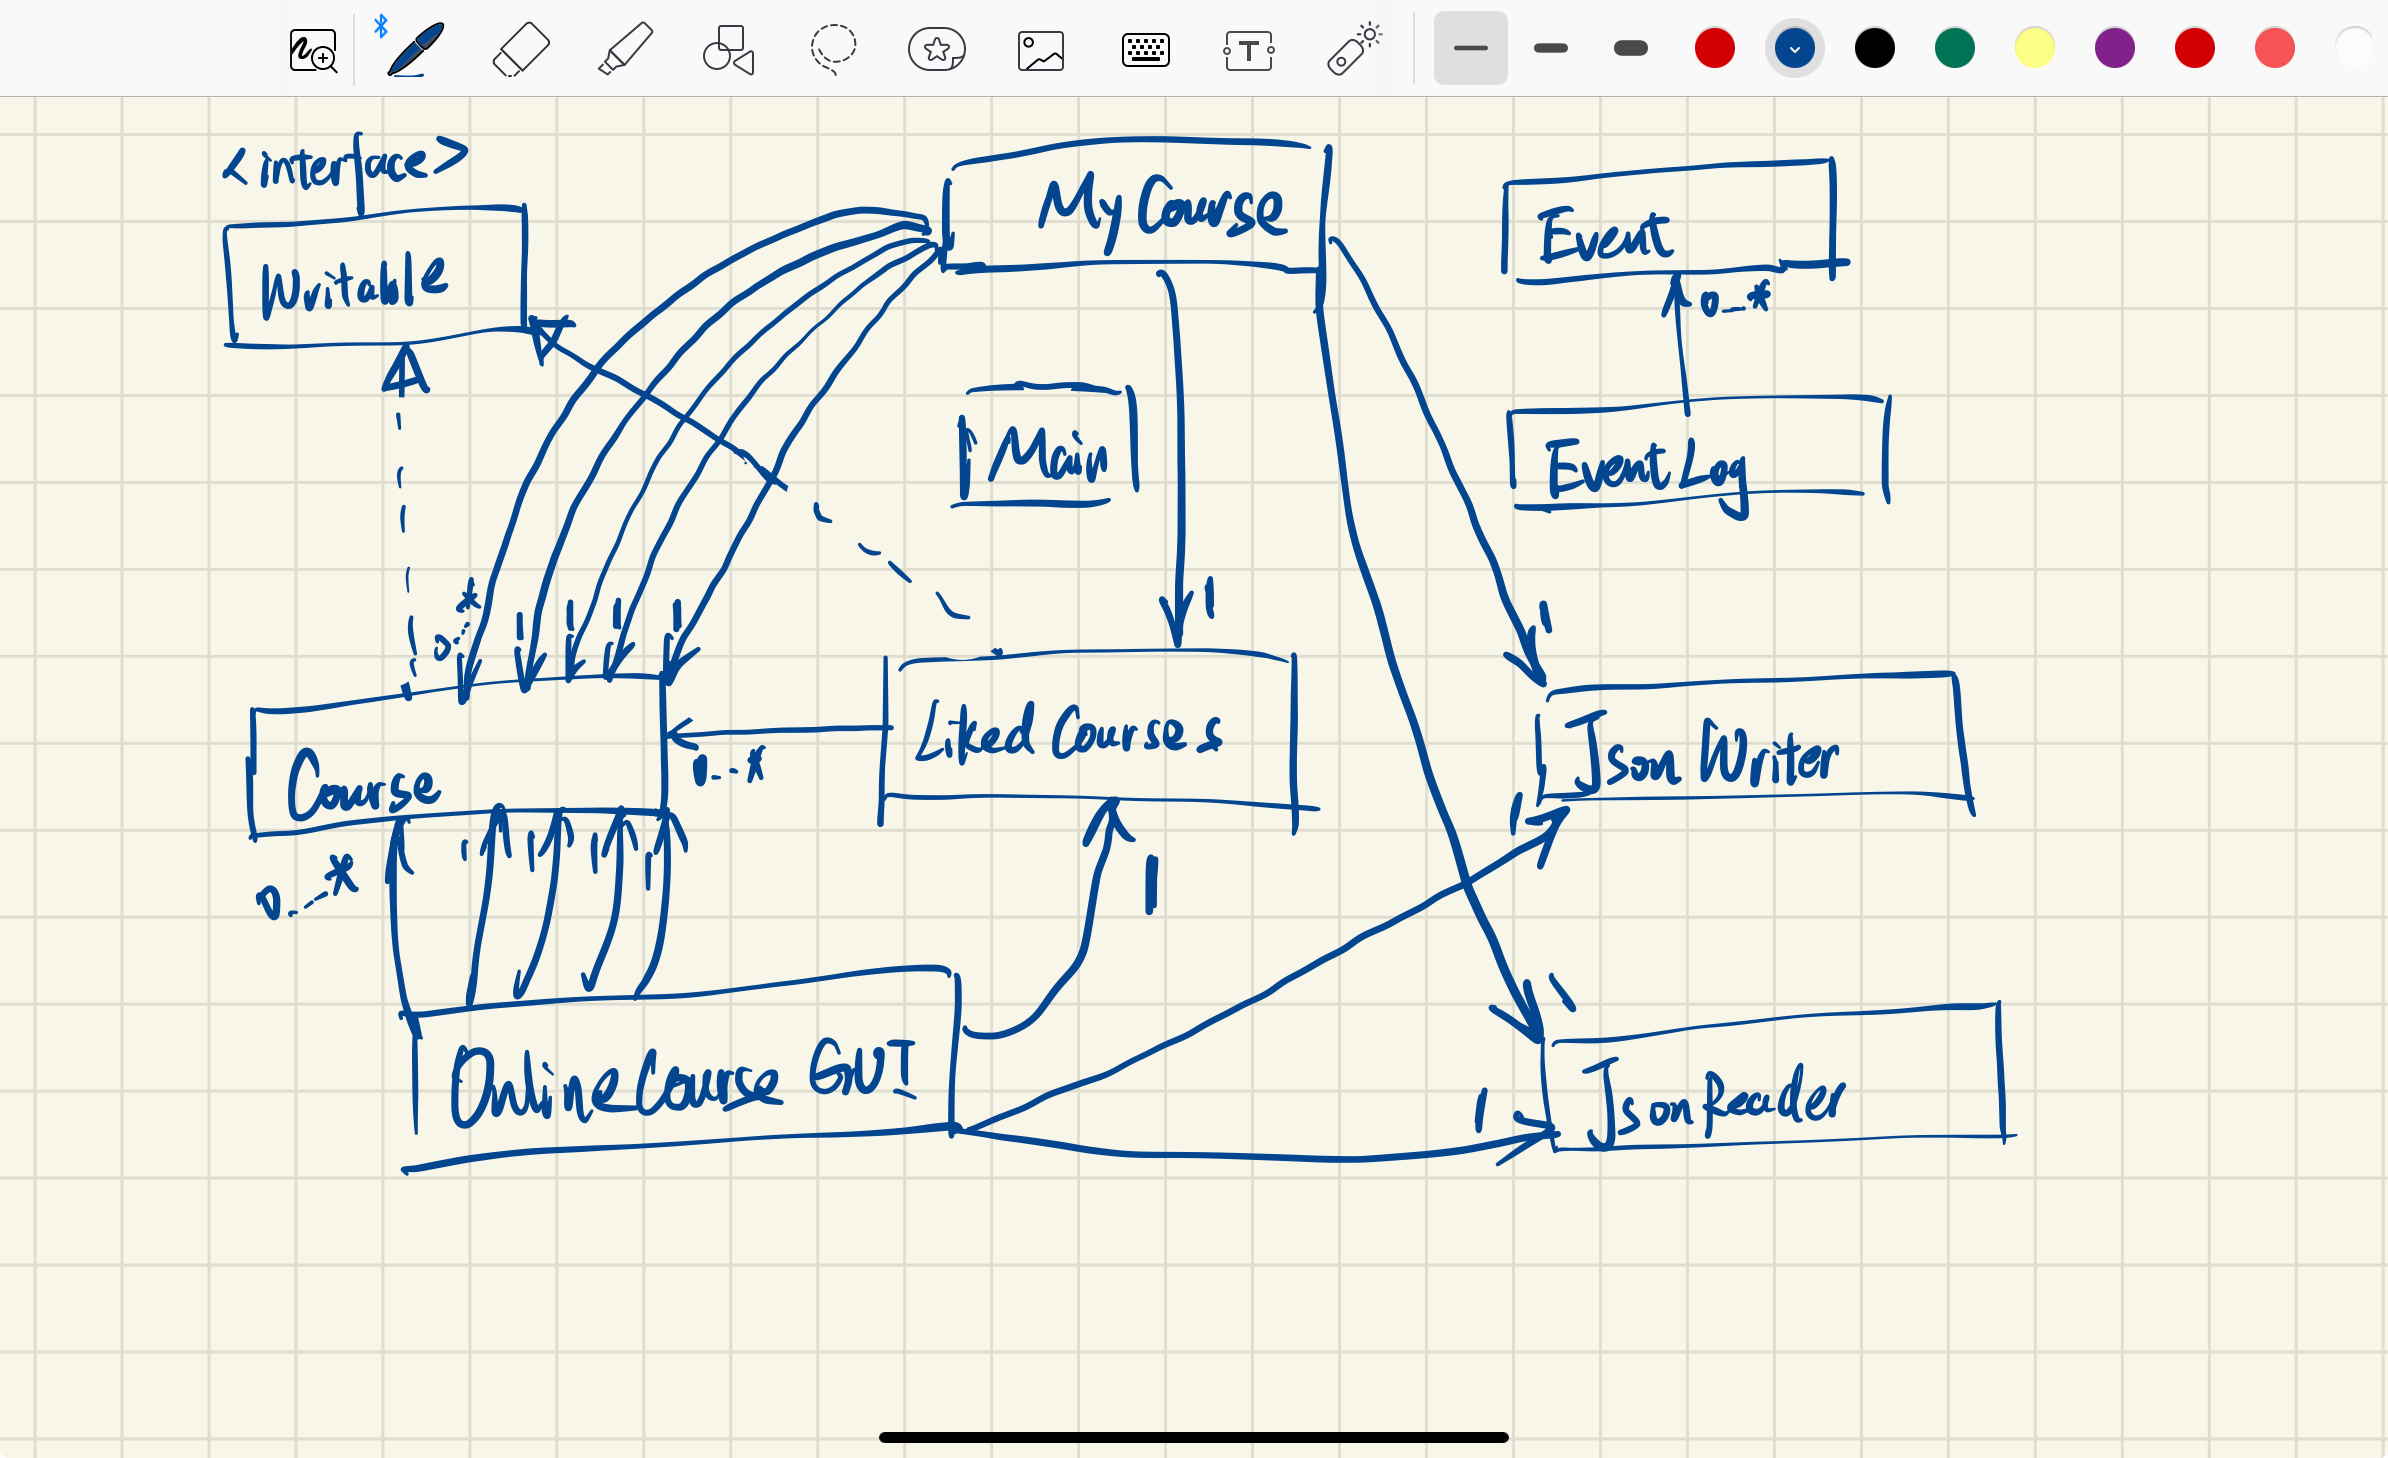 <interface>
Writable
My Course
Event
0..*
Main
EventLog
0..*
1
1
1
1
1
1
Course
0..*
Liked Courses
Json Writer
1
0..*
1
1
1
1
1
1
OnlineCourse GUI
1
1
JsonReader